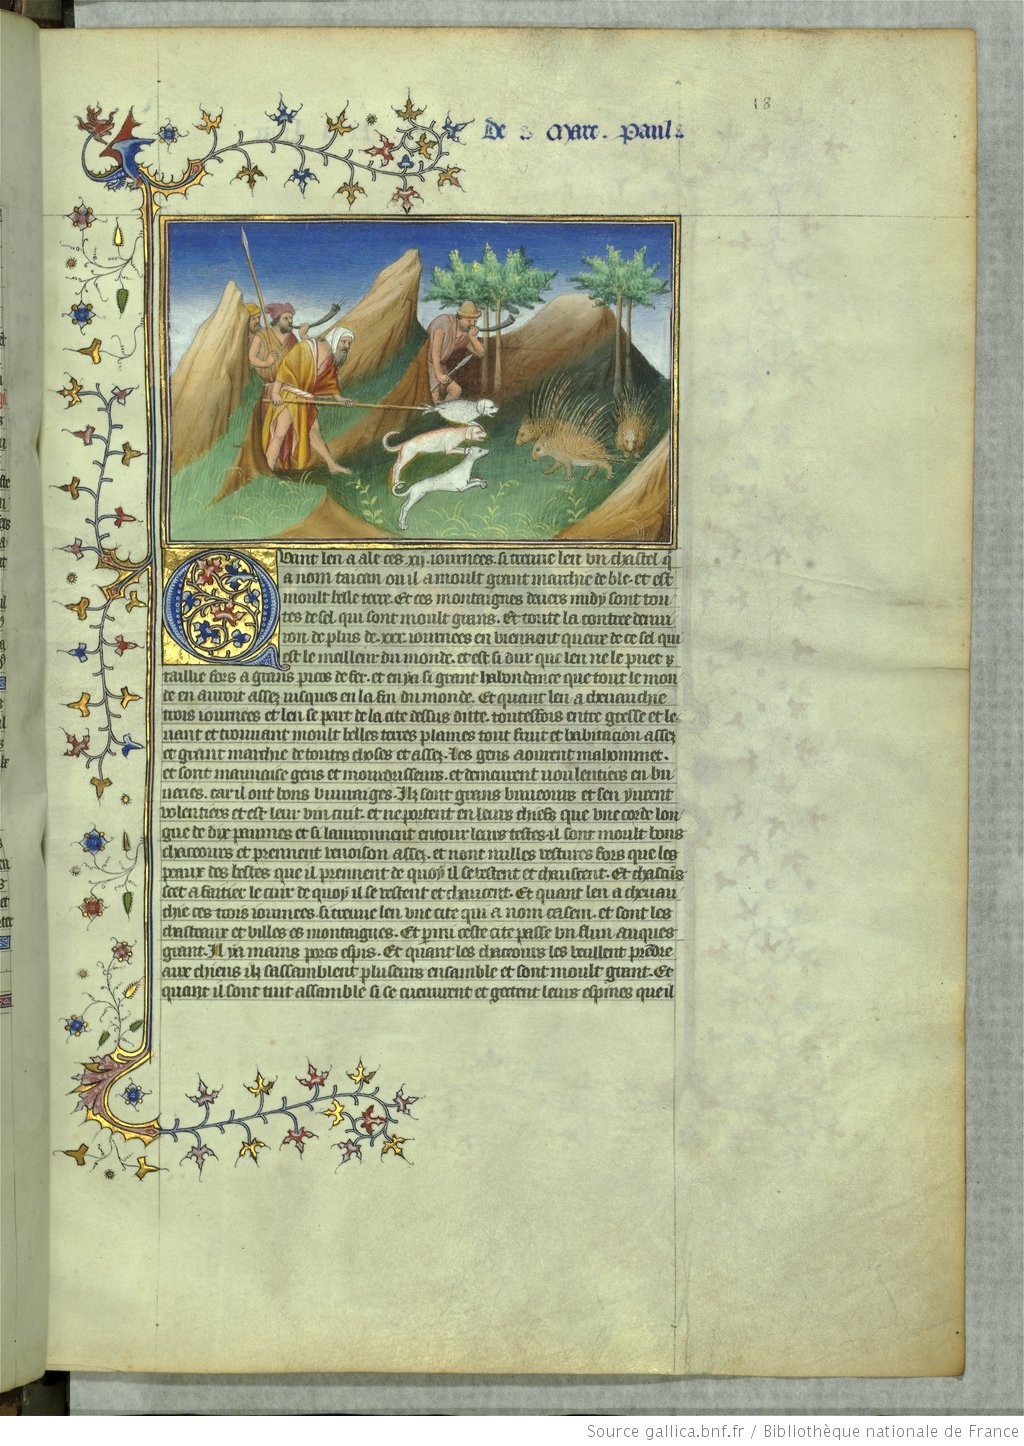 18
de Marc. Paul
Quant len a ale ces .xij. iournees. si treuue len vn chastel q̄
a nom taican ou il a moult grant marchie de ble. et est
moult belle terre. Et ces montaignes deuers midy sont tou
tes de sel qui sont moult grans. Et toute la contree denui
ron de plus de .xxx. iournees en viennent querre de ce sel qui
est le meilleur du monde. et est si dur que len ne le puet
taillie fors a grans picos de fer. et en ya si grant habondance que tout le mon
de en auroit assez iusques en la fin du monde. Et quant len a cheuauchie
trois iournees et len se part de la cite dessus ditte. toutesfois entre gresse et le
uant et trouuant moult belles terres plaines tout fruit et habitacion assez
et grant marchie de toutes choses et assez. Les gens aourent mahommet.
et sont mauuaise gens et mourdrisseurs. et demeurent voulentiers en bu
ueries. car il ont bons buuraiges. Ilz sont grans buueours et sen yurent
volentiers et est leur vin cuit. et ne portent en leurs chiefz que vne corde lon
gue de dix paumes et si lauironnent entour leurs testes. il sont moult bons
chaceours et prennent venoison assez. et nont nulles vestures fors que les
peaux des bestes que il prennent de quoy il se vestent et chaucent. Et chascūs
scet a faitier le cuir de quoy il se vestent et chaucent. Et quant len a cheuau
chie ces trois iournees. si treuue len vne cite qui a nom casem. et sont les
chasteaux et villes es montaignes. Et parmi ceste cite passe vn flun auques
grant. Il ya mains porcs espis. Et quant les chaceours les veullent prēdre
aux chiens ilz sassamblent plusieurs ensamble et sont moult grant. Et
quant il sont tuit assamble si se cueuurent et gettent leurs espines que il
Source gallica.bnf.fr / Bibliothèque nationale de France